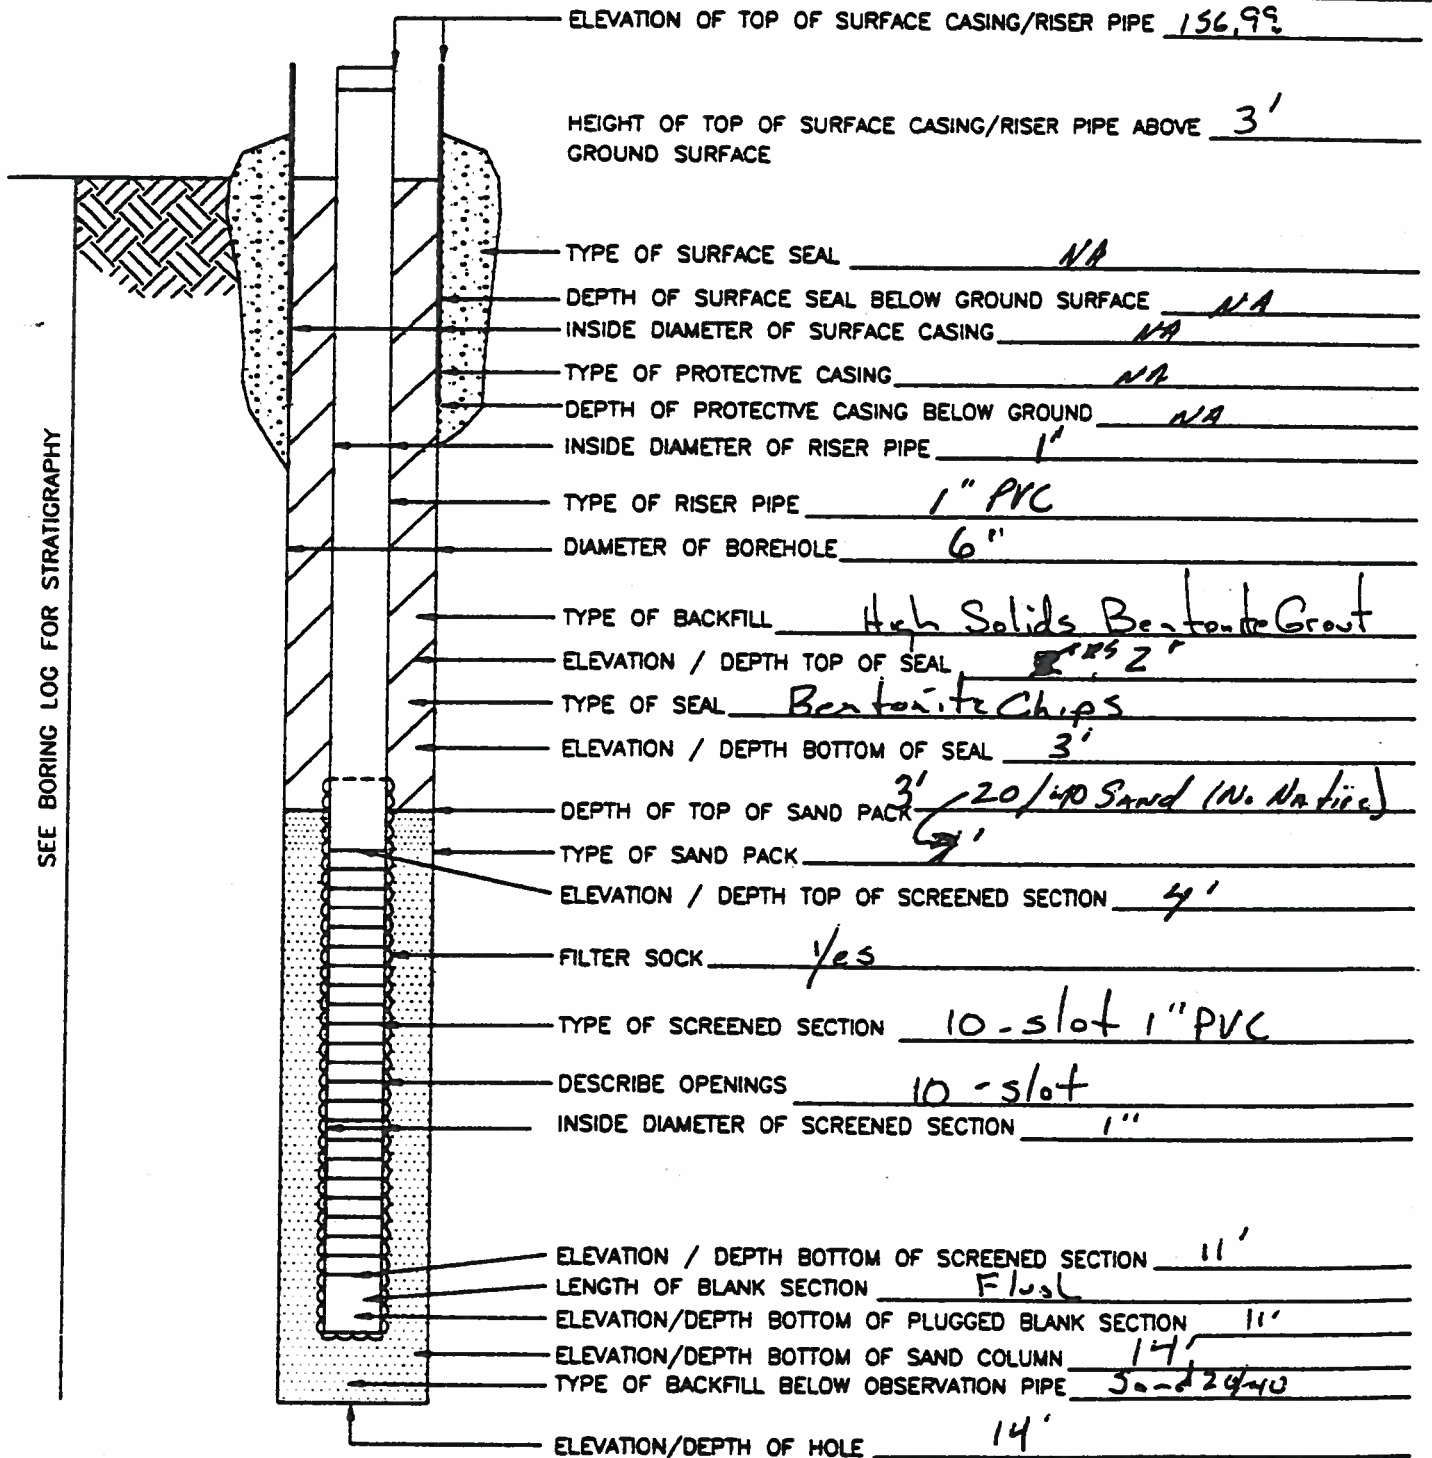 ELEVATION OF TOP OF SURFACE CASING/RISER PIPE 156.99
HEIGHT OF TOP OF SURFACE CASING/RISER PIPE ABOVE 3'
GROUND SURFACE
TYPE OF SURFACE SEAL NA
DEPTH OF SURFACE SEAL BELOW GROUND SURFACE NA
INSIDE DIAMETER OF SURFACE CASING NA
TYPE OF PROTECTIVE CASING NA
DEPTH OF PROTECTIVE CASING BELOW GROUND NA
INSIDE DIAMETER OF RISER PIPE 1"
TYPE OF RISER PIPE 1" PVC
DIAMETER OF BOREHOLE 6"
TYPE OF BACKFILL High Solids Bentonite Grout
ELEVATION / DEPTH TOP OF SEAL 2'
TYPE OF SEAL Bentonite Chips
ELEVATION / DEPTH BOTTOM OF SEAL 3'
DEPTH OF TOP OF SAND PACK 3' 20/40 Sand (No Native)
TYPE OF SAND PACK
ELEVATION / DEPTH TOP OF SCREENED SECTION 4'
FILTER SOCK Yes
TYPE OF SCREENED SECTION 10-slot 1" PVC
DESCRIBE OPENINGS 10-slot
INSIDE DIAMETER OF SCREENED SECTION 1"
ELEVATION / DEPTH BOTTOM OF SCREENED SECTION 11'
LENGTH OF BLANK SECTION Flush
ELEVATION/DEPTH BOTTOM OF PLUGGED BLANK SECTION 11'
ELEVATION/DEPTH BOTTOM OF SAND COLUMN 14'
TYPE OF BACKFILL BELOW OBSERVATION PIPE Sand 20/40
ELEVATION/DEPTH OF HOLE 14'
SEE BORING LOG FOR STRATIGRAPHY